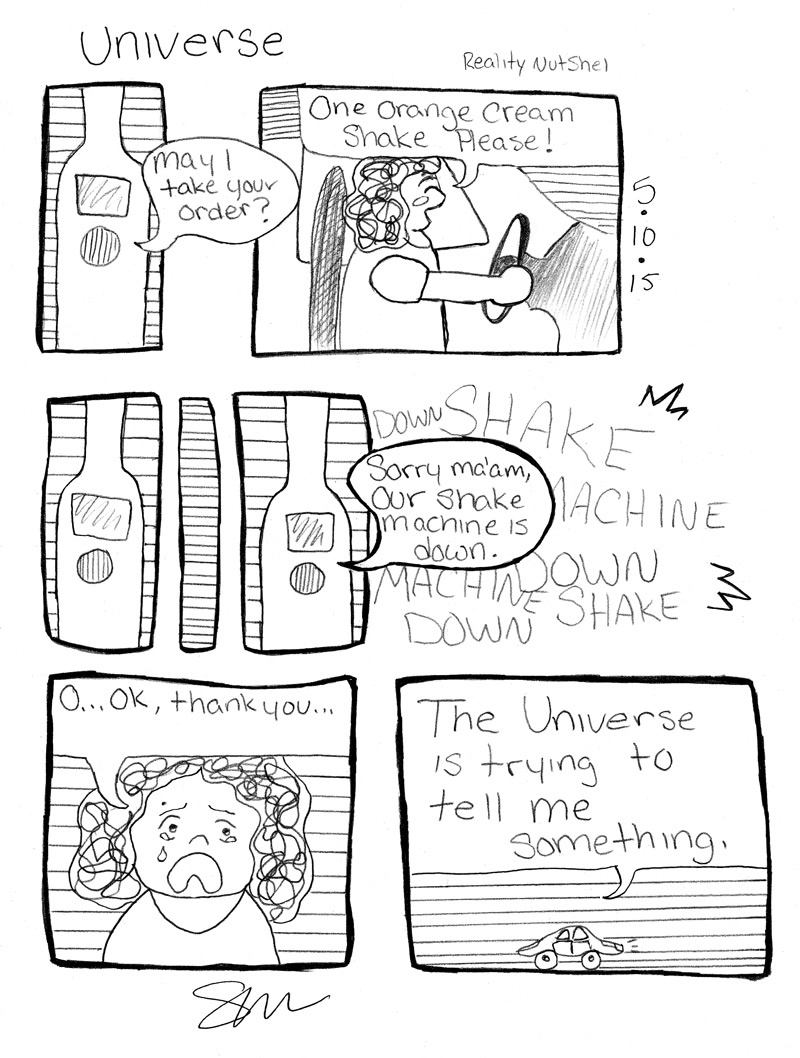 Universe
Reality NutShel
May I
take your
order?
One Orange Cream
Shake Please!
5
.
10
.
15
DOWN SHAKE
MACHINE
DOWN
MACHINE
SHAKE
DOWN
Sorry ma'am,
our shake
machine is
down.
O...OK, thank you...
The Universe
is trying to
tell me
something.